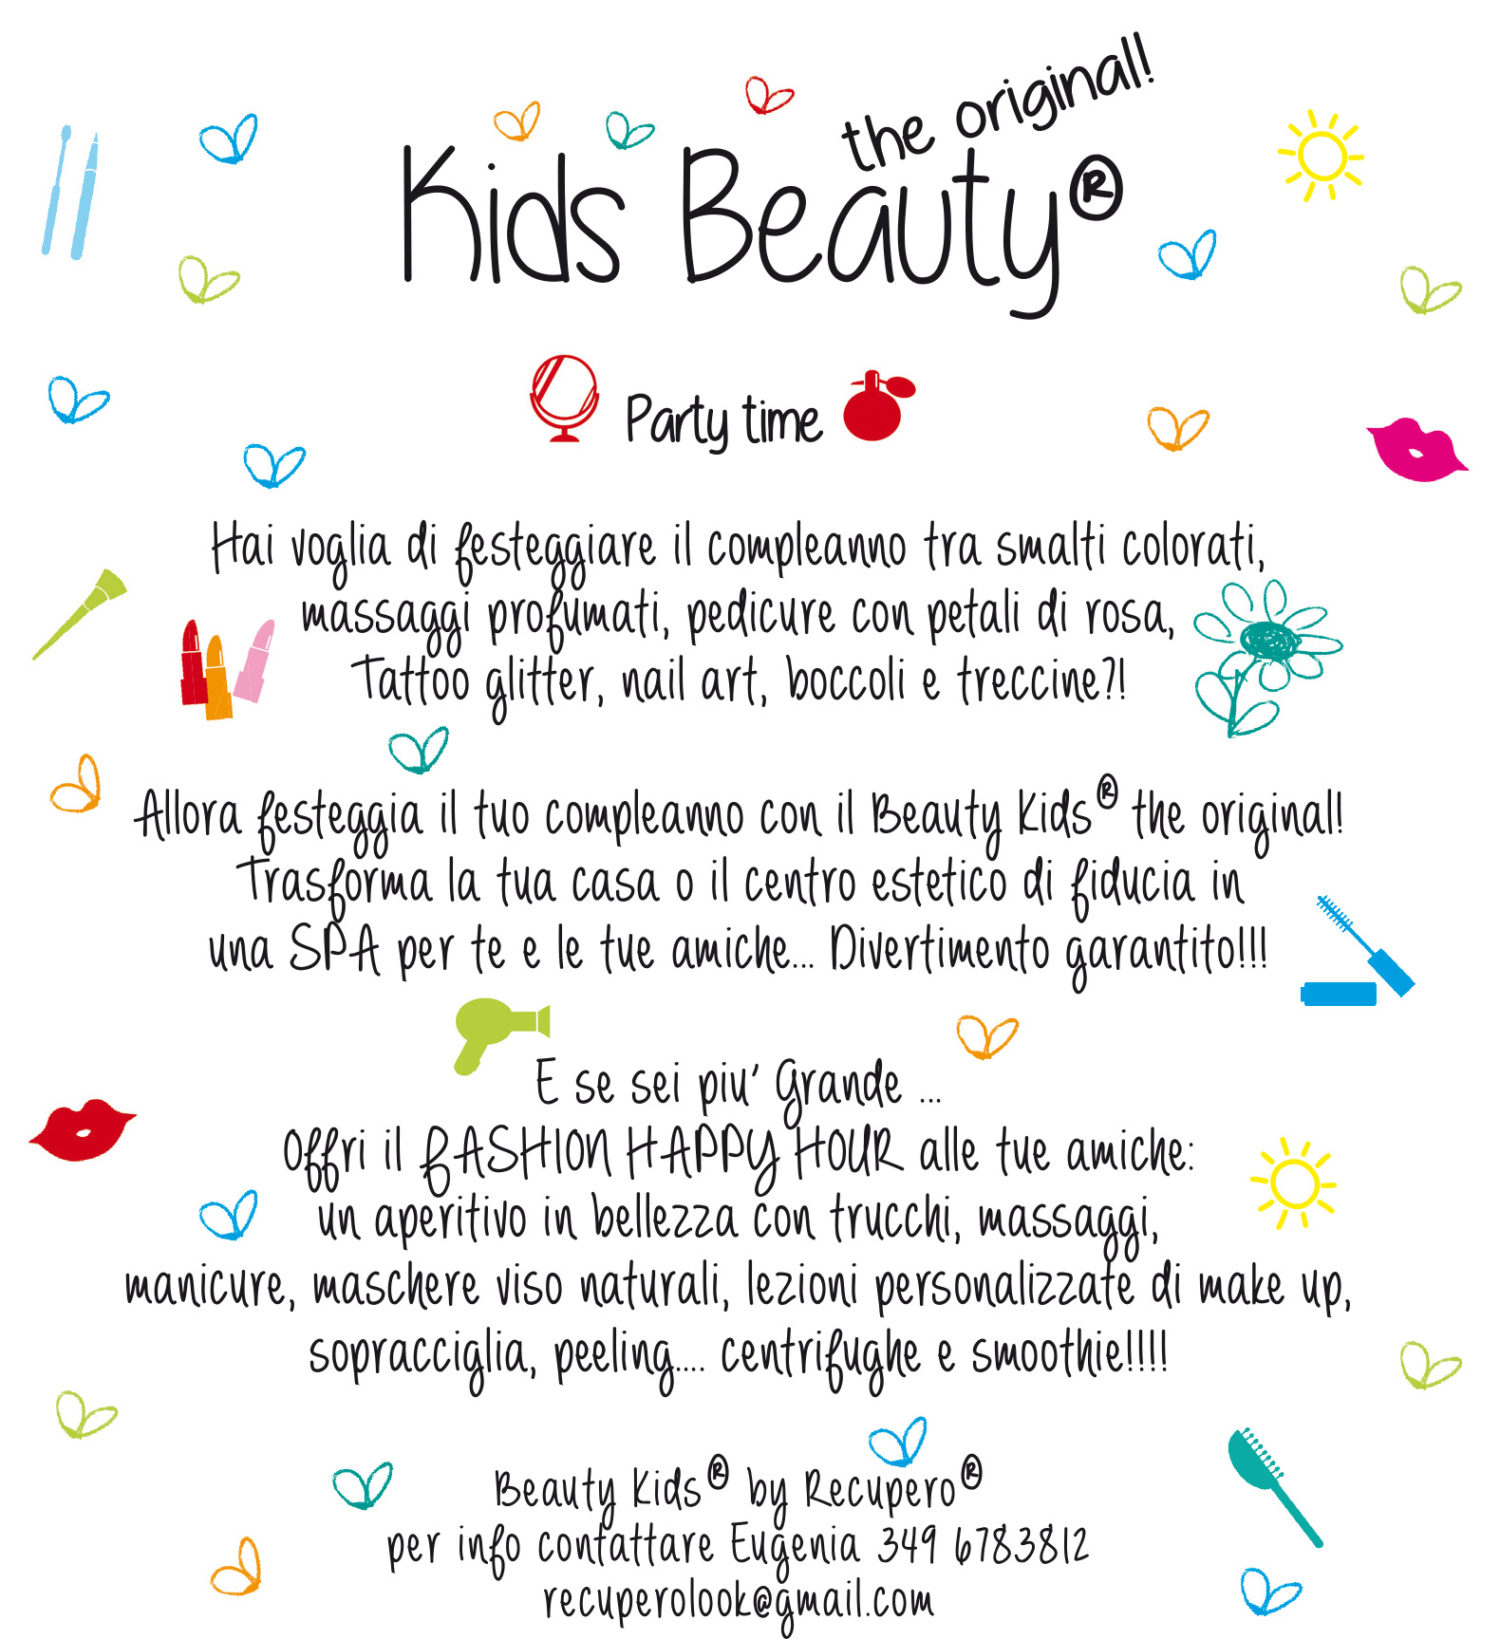 the original!
Kids Beauty®
Party time
Hai voglia di festeggiare il compleanno tra smalti colorati,
massaggi profumati, pedicure con petali di rosa,
Tattoo glitter, nail art, boccoli e treccine?!
Allora festeggia il tuo compleanno con il Beauty Kids® the original!
Trasforma la tua casa o il centro estetico di fiducia in
una SPA per te e le tue amiche... Divertimento garantito!!!
E se sei piu' Grande ...
Offri il FASHION HAPPY HOUR alle tue amiche:
un aperitivo in bellezza con trucchi, massaggi,
manicure, maschere viso naturali, lezioni personalizzate di make up,
sopracciglia, peeling.... centrifughe e smoothie!!!!
Beauty Kids® by Recupero®
per info contattare Eugenia 349 6783812
recuperolook@gmail.com